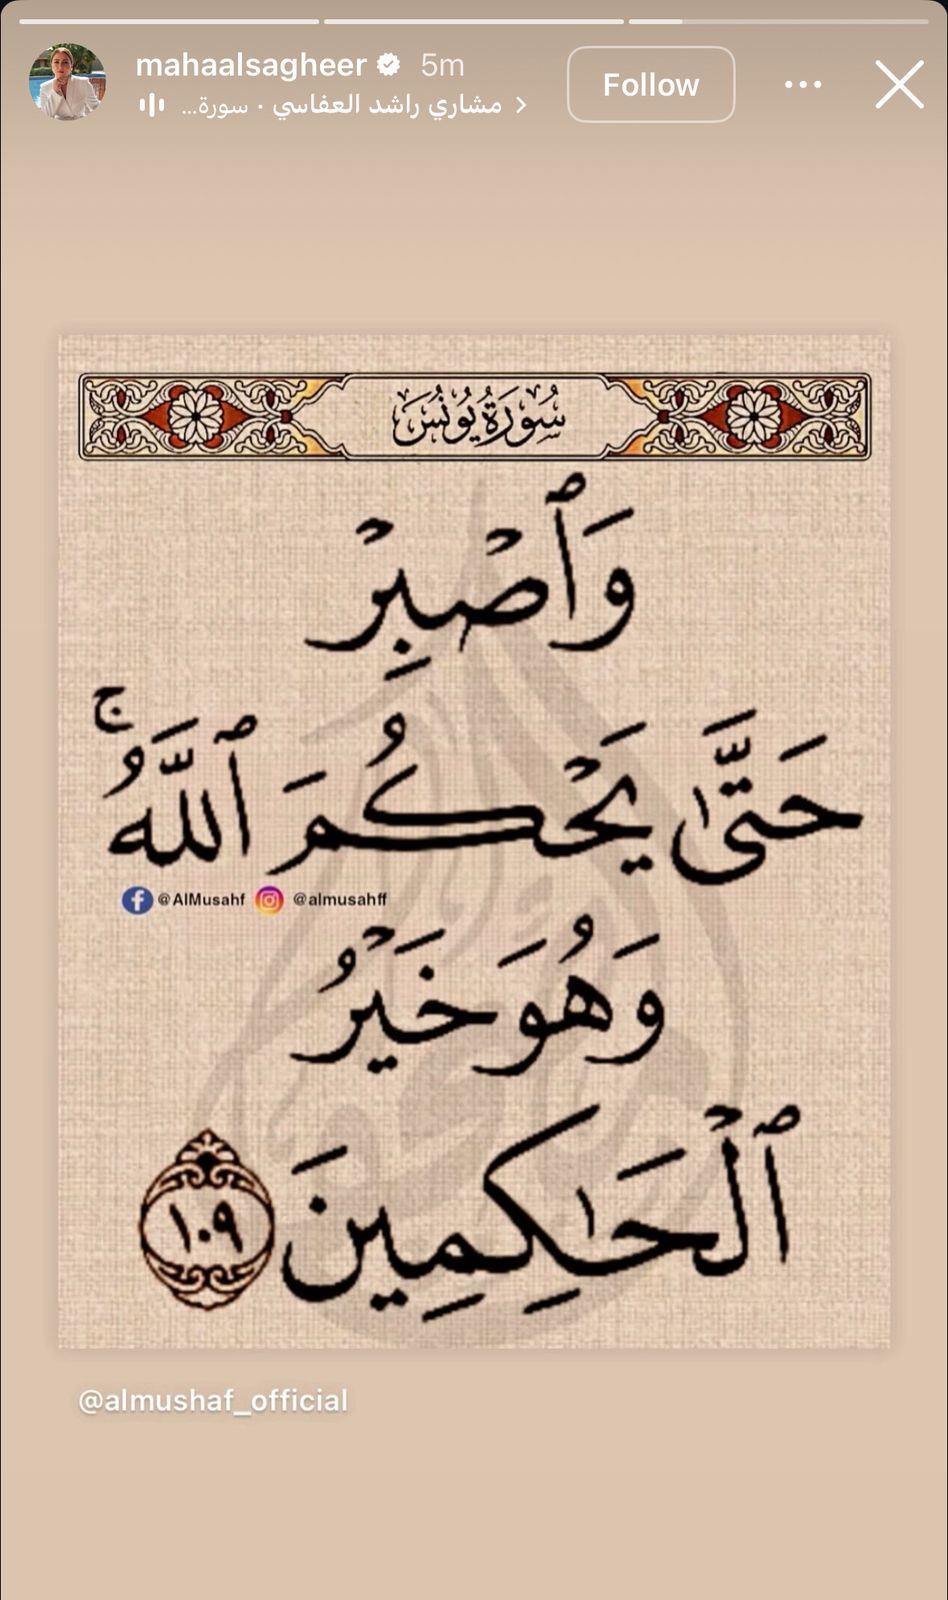 mahaalsagheer 5m
مشاري راشد العفاسي · سورة...
Follow
سُورَةُ يُونُسَ
وَٱصْبِرْ
حَتَّىٰ يَحْكُمَ ٱللَّهُ ۚ
@AlMusahf @almusahff
وَهُوَ خَيْرُ
ٱلْحَـٰكِمِينَ ١٠٩
@almushaf_official